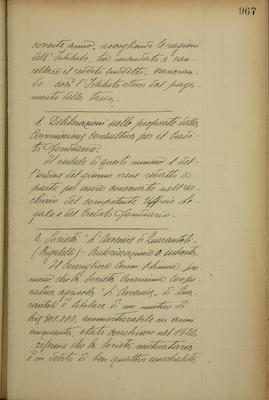 967
corrente anno, accogliendo le ragioni
dell'Istituto, ha mandato a can-
cellare il reddito suddetto, esoneran-
do così l'Istituto stesso dal paga-
mento della tassa.
1. Deliberazioni sulle proposte della
Commissione consultiva per il Credi-
to fondiario.
Il verbale di questo numero 1 del-
l'ordine del giorno viene redatto a
parte per essere conservato nell'ar-
chivio del competente Ufficio
del Credito fondiario.
2. Società "L'Avvenire" di Quarantoli
Autorizzazione a
Il Consigliere
che la Società Anonima Coope-
rativa agricola "L'Avvenire" di Qua-
rantoli è titolare di un mutuo di
300.000, ammortizzabile in anni
cinquanta, stato conchiuso nel 1920,
riferisce che la Società mutuataria
è in debito di ben quattro semestralità